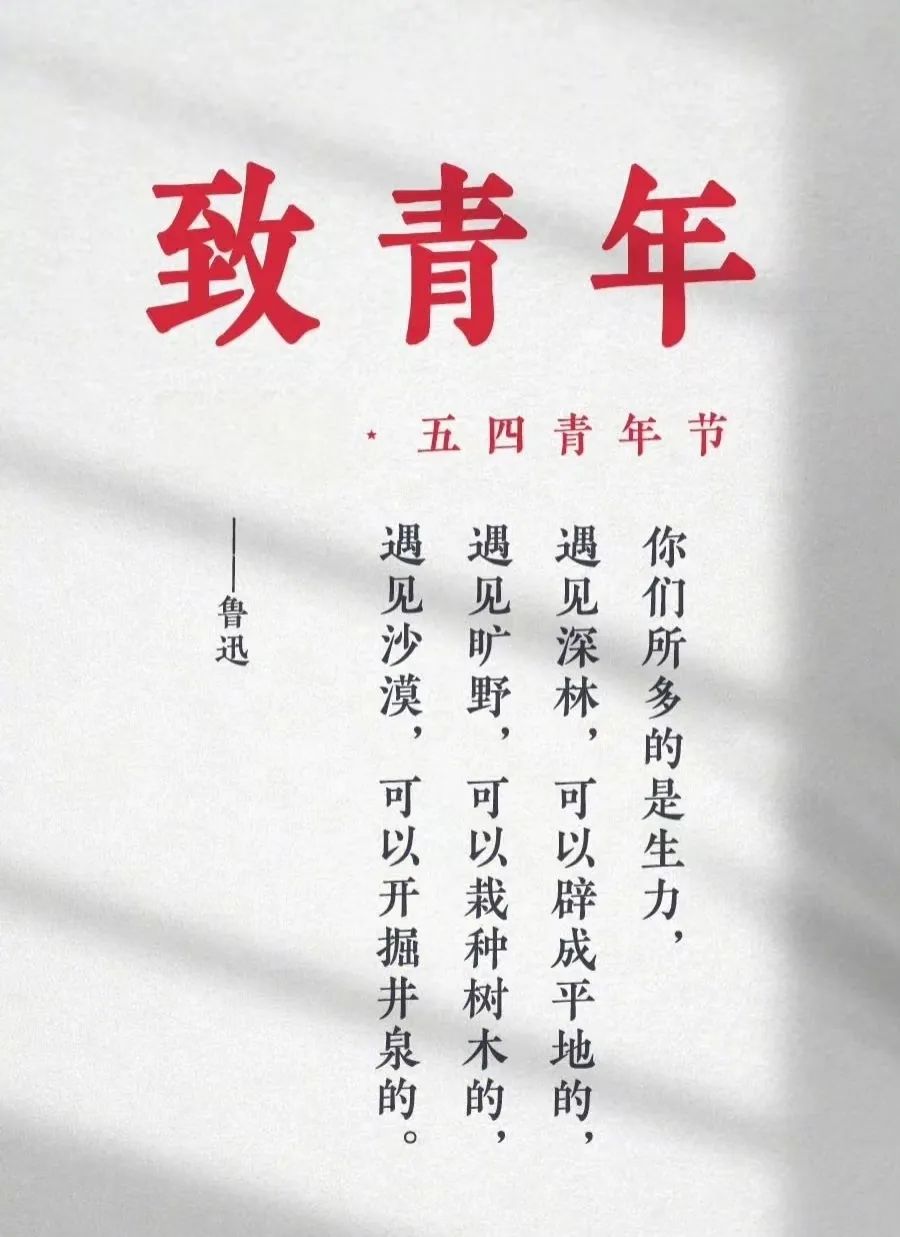 致青年
★ 五四青年节
你们所多的是生力，
遇见深林，可以辟成平地的，
遇见旷野，可以栽种树木的，
遇见沙漠，可以开掘井泉的。
——鲁迅